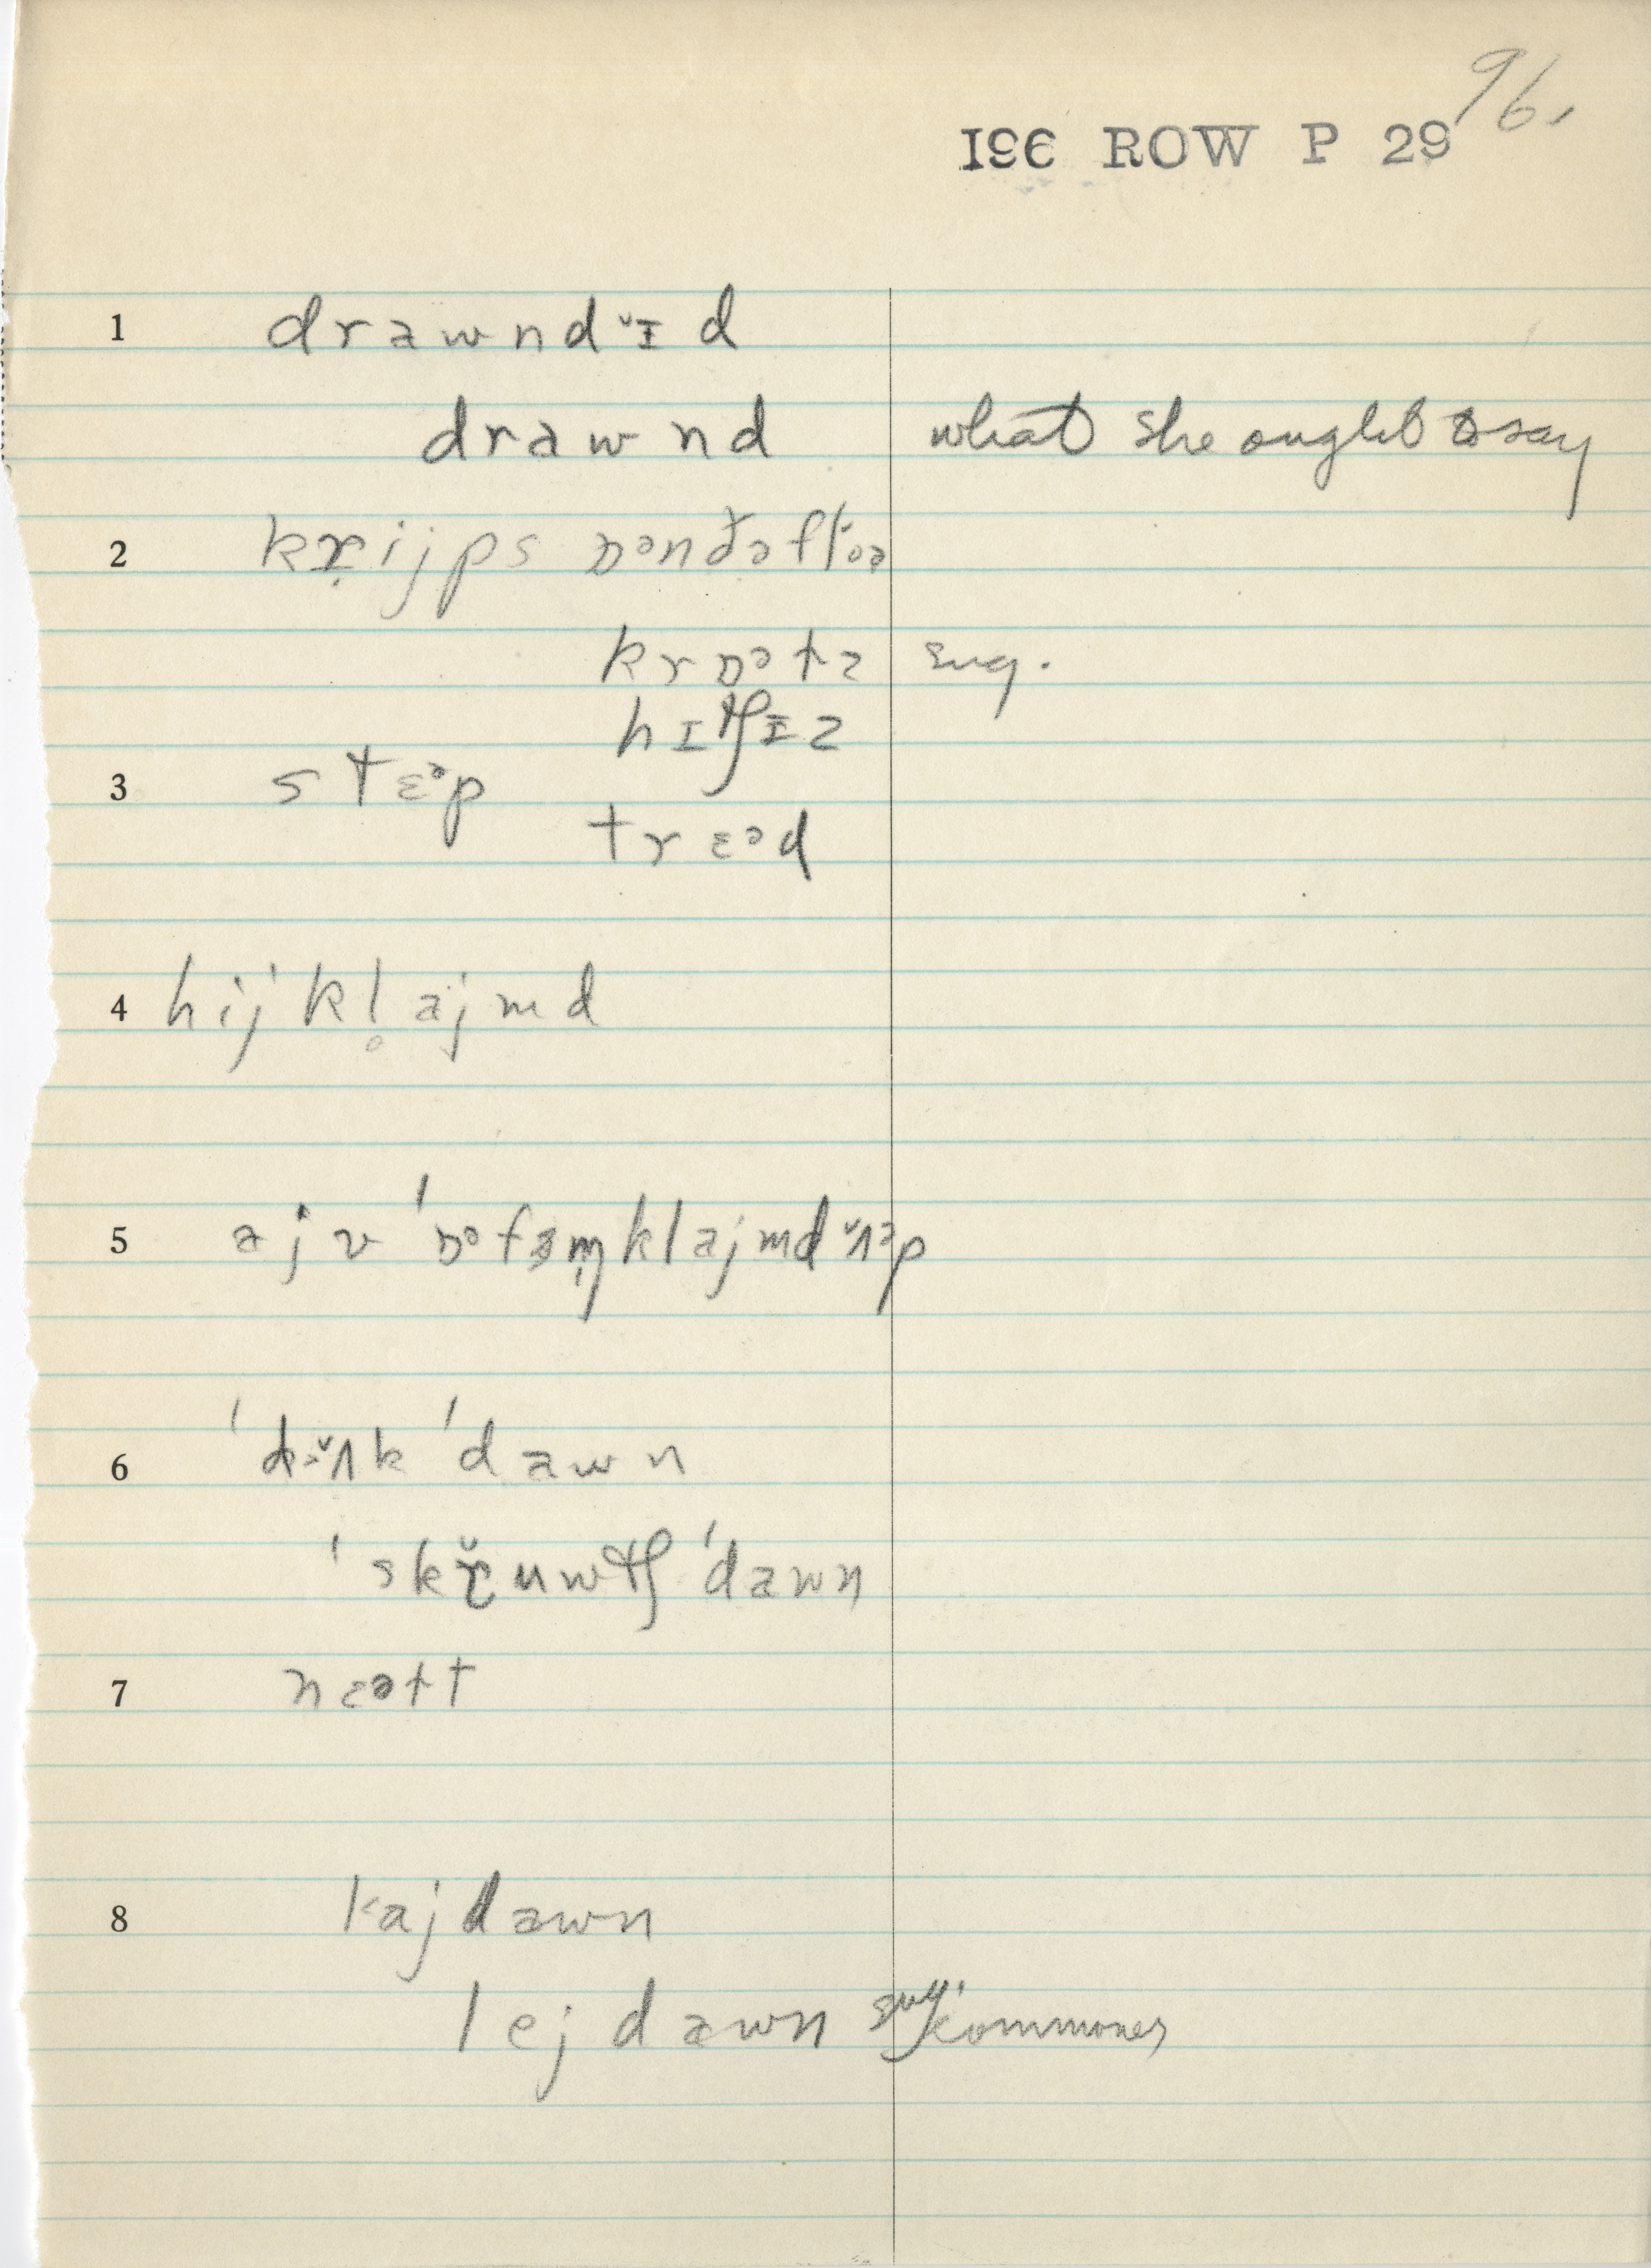 96.
I96 ROW P 29
1 drawndˇɪd
drawnd what she ought to say
2 kr̥ijps ɒᵊnðəflɔə
krɒᵊtz sug.
hɪtʃɪz
3 stɛᵊp
trɛᵊd
4 hijkl̥ajmd
5 ajv ˈɒᵊfsm̩klajmdˇʌᵊp
6 ˈdˇʌk ˈdawn
ˈskř̥uwtʃ ˈdawn
7 nɛətt
8 kajdawn
lejdawn sug. commoner